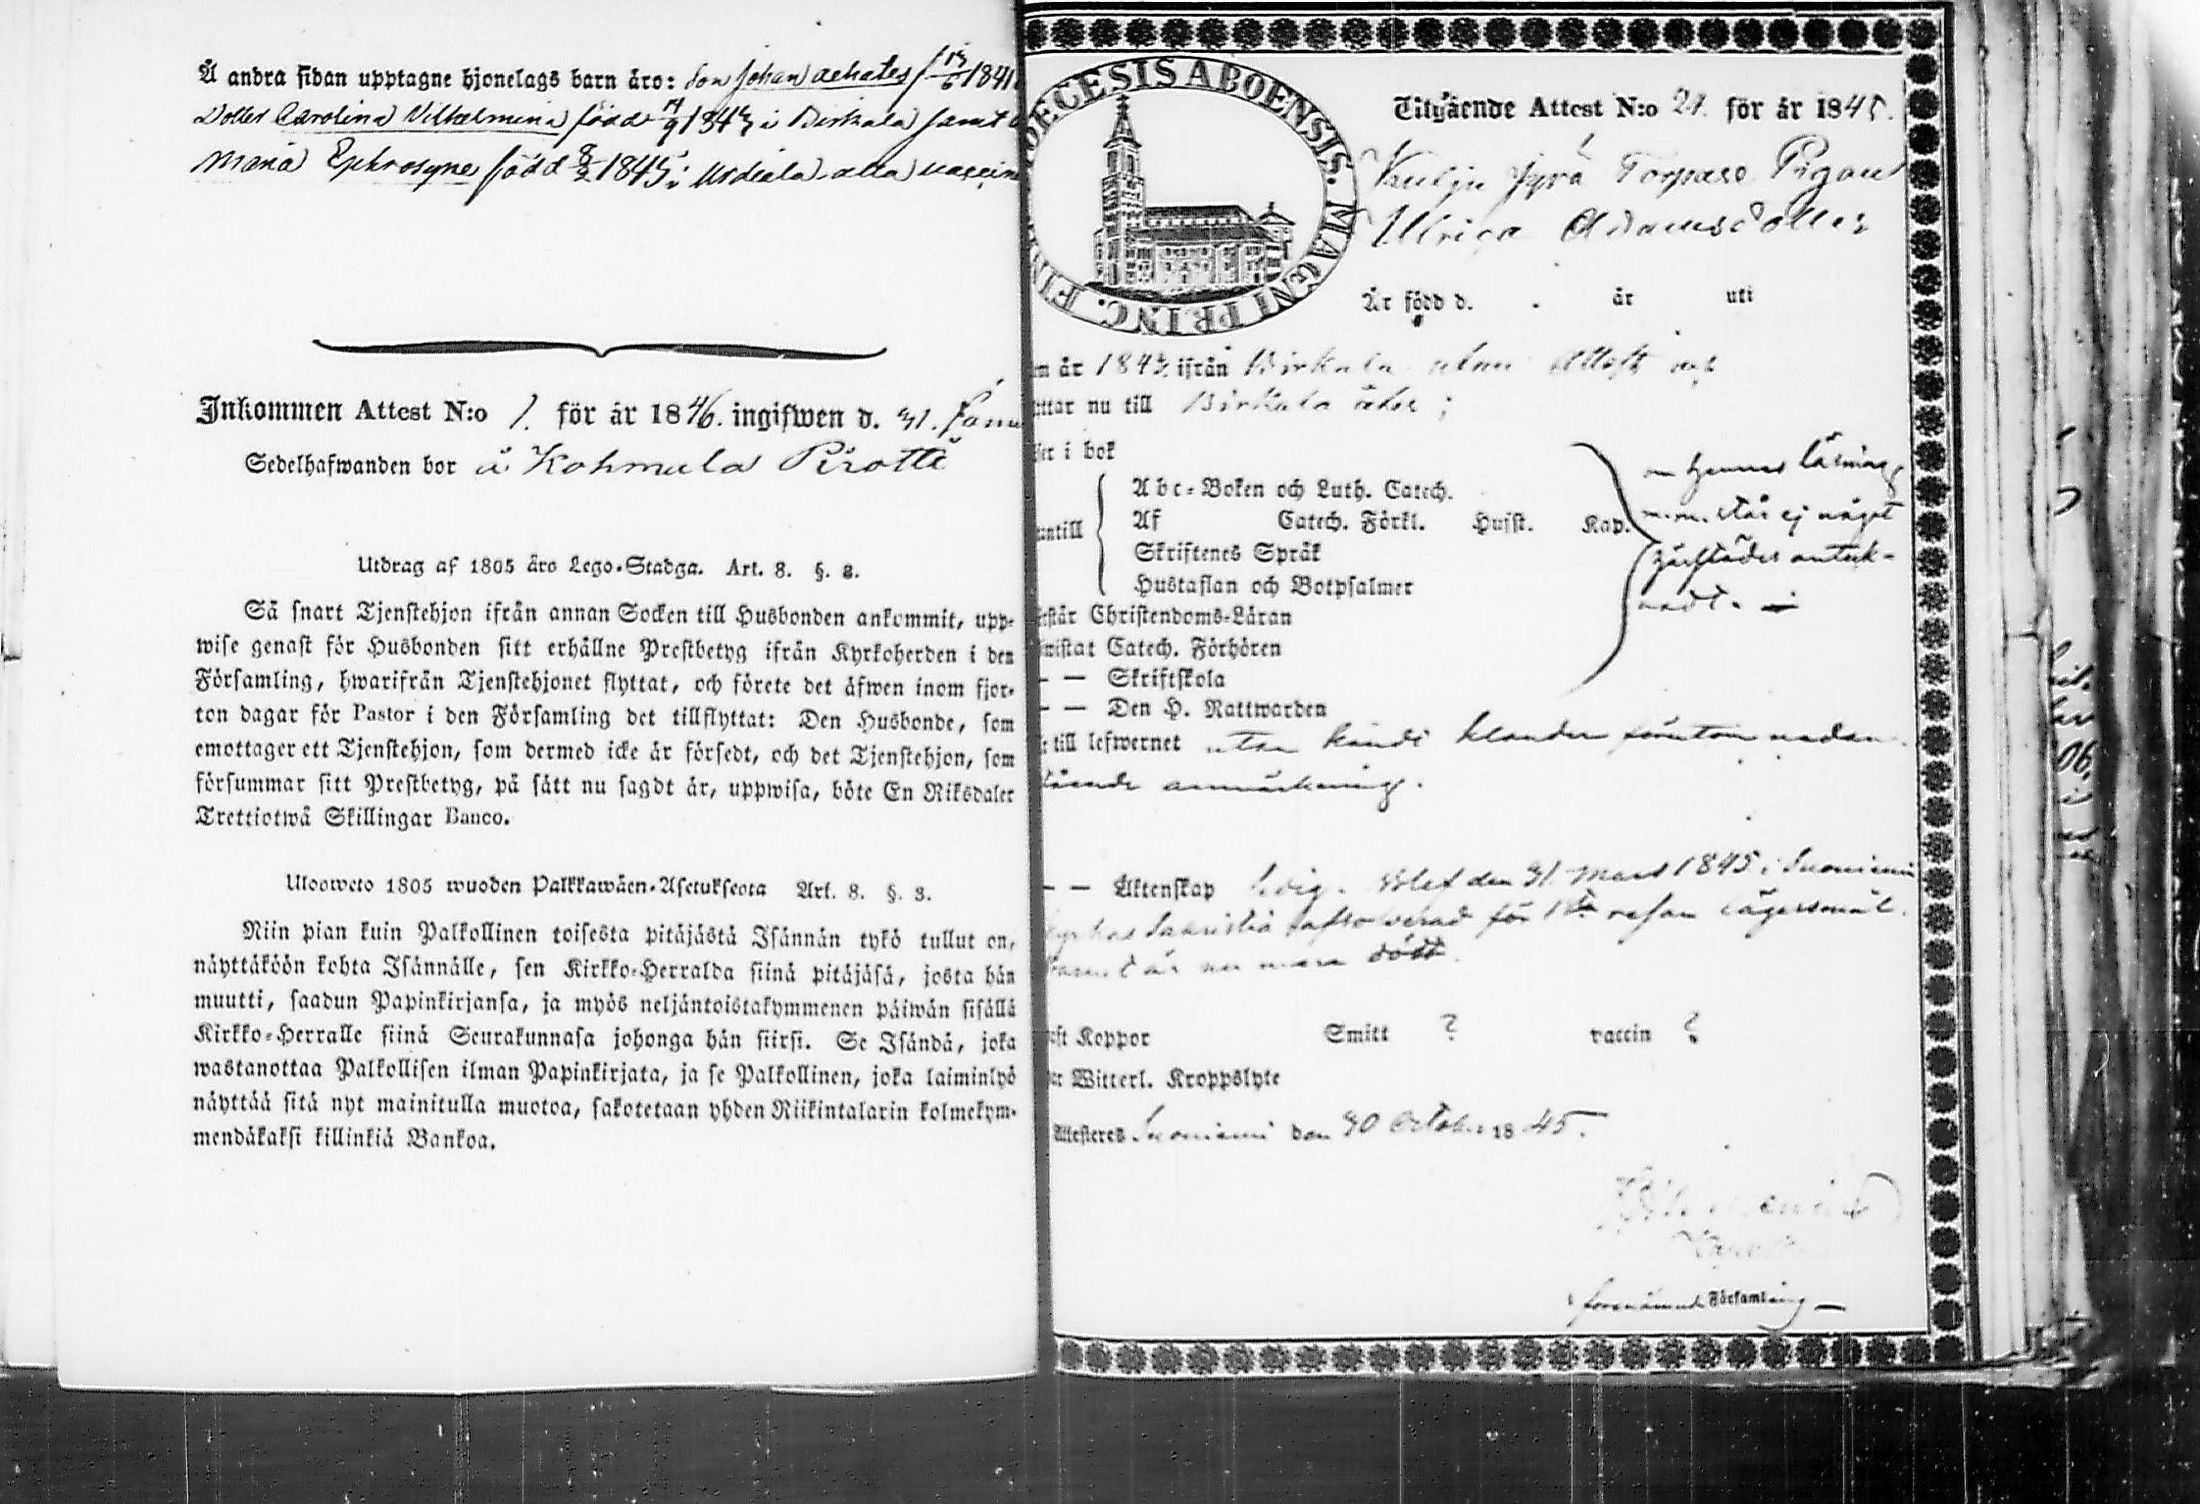 Å andra sidan upptagne hjonelags barn äro: Son Johan Achates f 13/6 1841
Dotter Carolina Vilhelmina född 1843 i Birkala samt
Maria Ephrosyne född 8/2 1845 i alla vaccin
Inkommen Attest N:o 1. för år 1846. ingifwen d. 31. Janu
Sedelhafwanden bor å Kohmala Pirotti
Utdrag af 1805 års Lego-Stadga. Art. 8. §. 3.
Så snart Tjenstehjon ifrån annan Socken till Husbonden ankommit, upp-
wise genast för Husbonden sitt erhållne Prestbetyg ifrån Kyrkoherden i den
Församling, hwarifrån Tjenstehjonet flyttat, och förete det äfwen inom fjor-
ton dagar för Pastor i den Församling det tillflyttat: Den Husbonde, som
emottager ett Tjenstehjon, som dermed icke är försedt, och det Tjenstehjon, som
försummar sitt Prestbetyg, på sätt nu sagdt är, uppwisa, böte En Riksdaler
Trettiotwå Skillingar Banco.
Ulosweto 1805 wuoden Palkkawäen-Asetuksesta Art. 8. §. 3.
Niin pian kuin Palkollinen toisesta pitäjästä Isännän tykö tullut on,
näyttäköön kohta Isännälle, sen Kirkko-Herralda siinä pitäjäsä, josta hän
muutti, saadun Papinkirjansa, ja myös neljäntoistakymmenen päiwän sisällä
Kirkko-Herralle siinä Seurakunnasa johonga hän siirsi. Se Isändä, joka
wastanottaa Palkollisen ilman Papinkirjata, ja se Palkollinen, joka laiminlyö
näyttää sitä nyt mainitulla muotoa, sakotetaan yhden Riikintalarin kolmekym-
mendäkaksi killinkiä Bankoa.
DECESIS ABOENSIS. MAGNI PRINC. FIN
Utgående Attest N:o 21. för år 1845.
Torpare Pigan
Ulrica Adamsdotter
Är född d. år uti
år 1843 ifrån Birkala utan Attest och
ttar nu till Birkala åter;
er i bok
Abc-Boken och Luth. Catech.
untill Af Catech. Förkl. Husst. Kap.
Skriftenes Språk
Hustaflan och Botpsalmer
om hennes läsning
m.m. står ej något
härstädes anteck-
nadt.
står Christendoms-Läran
wistat Catech. Förhören
— — Skriftskola
— — Den H. Nattwarden
till lefwernet utan kändt klander förutom nedan
stående anmärkning.
— — Äktenskap ledig. Blef den 31 Mars 1845 i Suoniemi
Kyrkas Sakristia absolverad för 1sta resan lägersmål.
Barnet är nu mera dödt.
Koppor Smitt ? vaccin ?
Witterl. Kroppslyte
Attesteras Suoniemi den 30 October 1845.
i förenämnde Församling